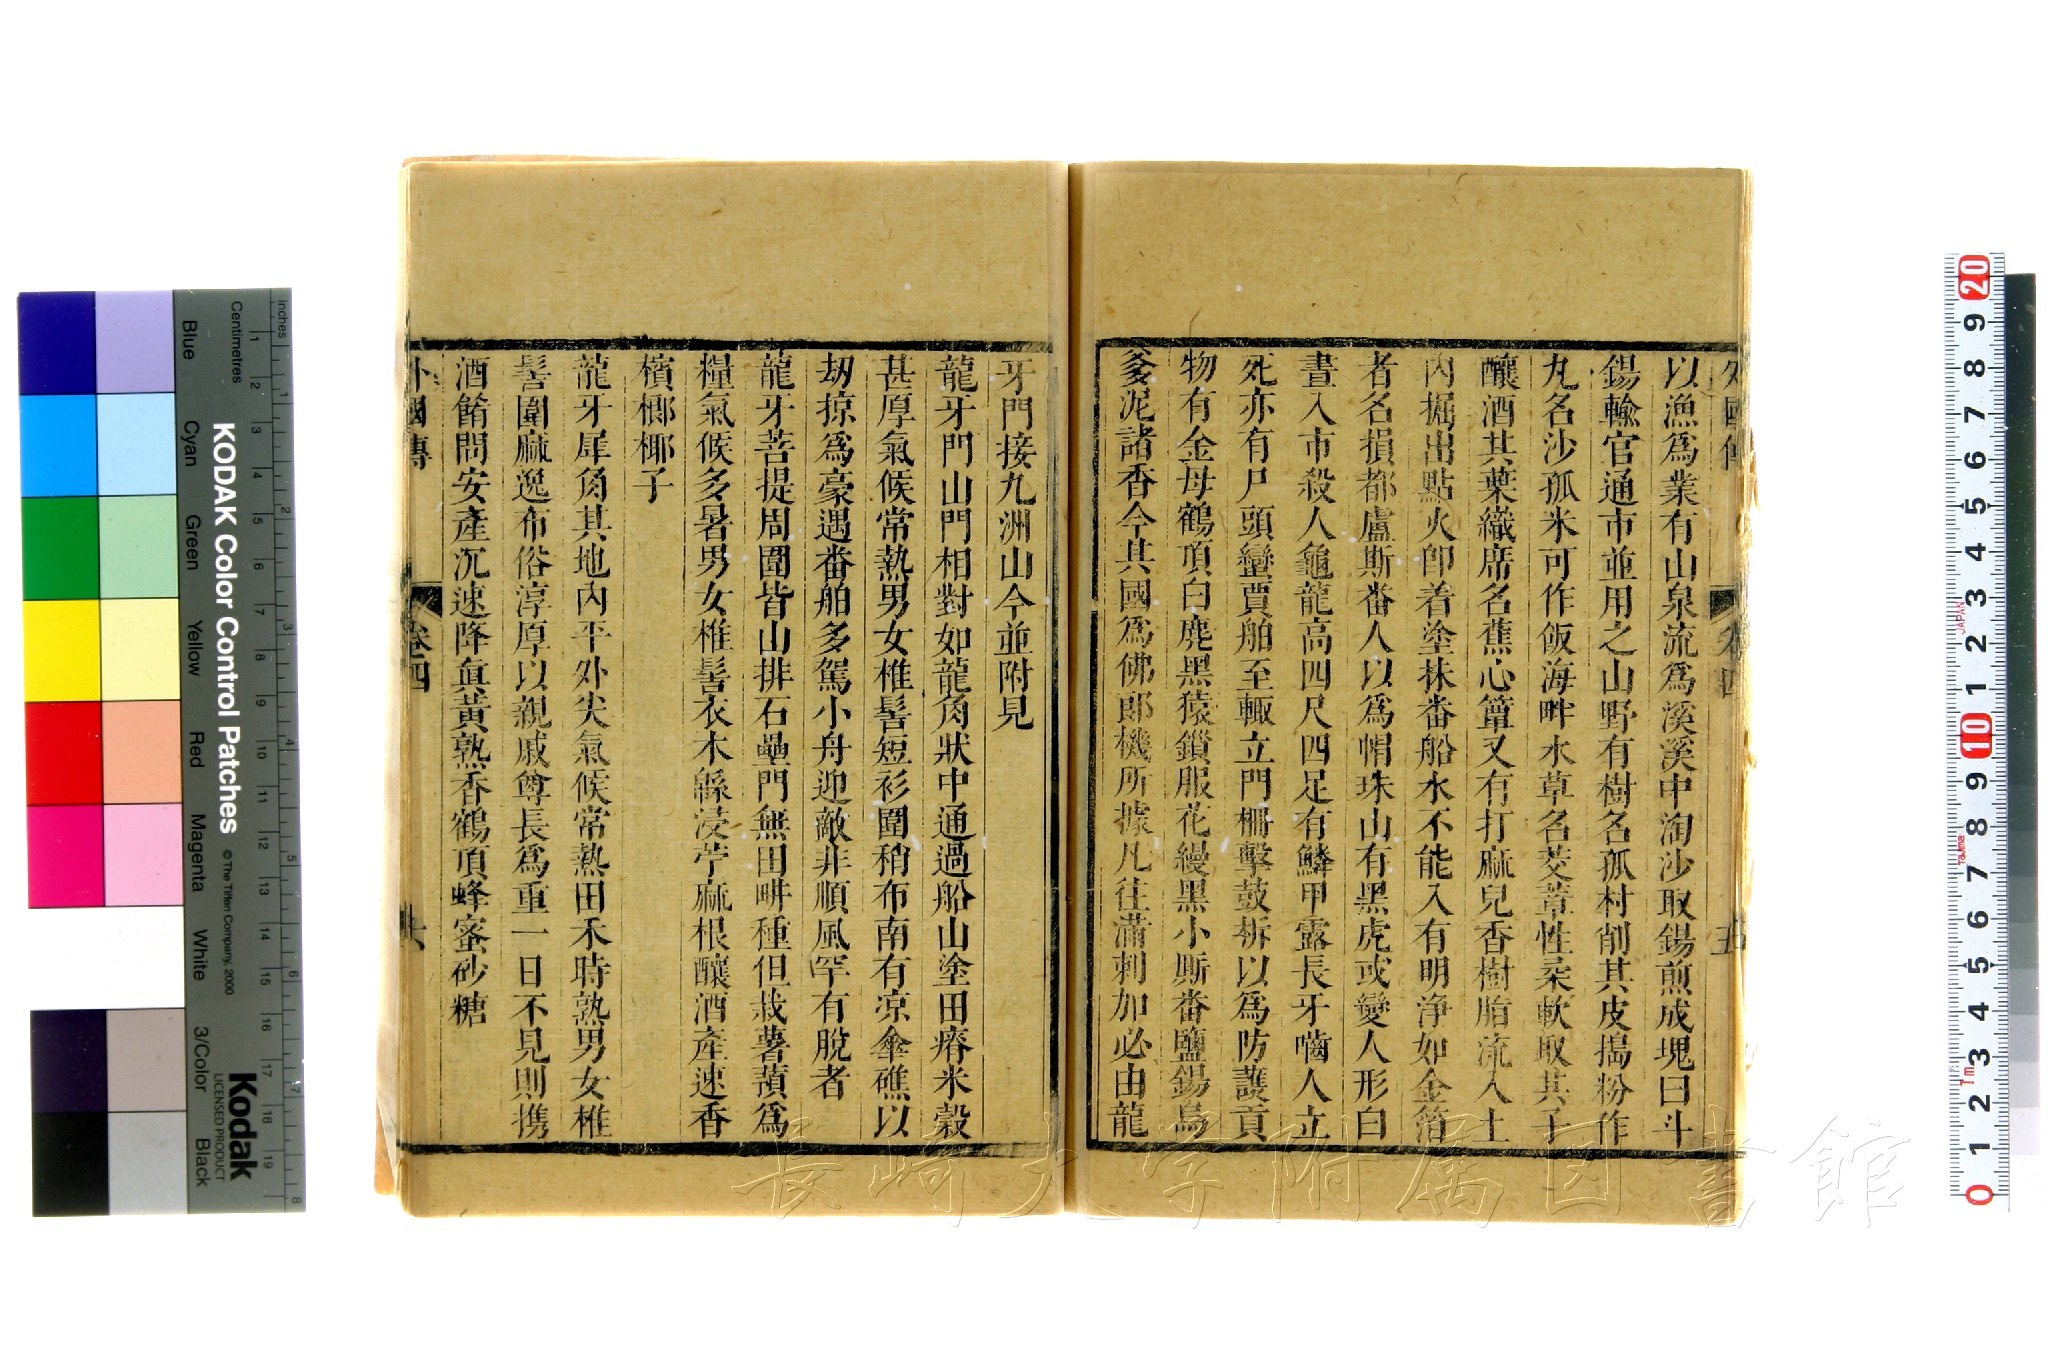 外國傳
卷四
五
以漁爲業有山泉流爲溪溪中淘沙取錫煎成塊曰斗
錫輸官通市並用之山野有樹名孤村削其皮搗粉作
丸名沙孤米可作飯海畔水草名茭葦性柔軟取其子
釀酒其葉織席名蕉心簟又有打麻兒香樹脂流入土
內掘出點火卽着塗抹番船水不能入有明淨如金箔
者名損都盧斯番人以爲帽珠山有黑虎或變人形白
晝入市殺人龜龍高四尺四足有鱗甲露長牙嚙人立
死亦有尸頭蠻賈舶至輙立門柵擊鼓拆以爲防護貢
物有金母鶴頂白麂黑猿鎖服花縵黑小厮番鹽錫烏
爹泥諸香今其國爲佛郎機所據凡往滿剌加必由龍
牙門接九洲山今並附見
龍牙門山門相對如龍角狀中通過船山塗田瘠米穀
甚厚氣候常熱男女椎髻短衫圍稍布南有凉傘礁以
刼掠爲豪遇番舶多駕小舟迎敵非順風罕有脫者
龍牙菩提周圍皆山排石壘門無田畊種但栽薯蕷爲
糧氣候多暑男女椎髻衣木緜浸苧麻根釀酒產速香
檳榔椰子
龍牙犀角其地內平外尖氣候常熱田禾時熟男女椎
髻圍麻逸布俗淳厚以親戚尊長爲重一日不見則携
酒餚問安產沉速降眞黃熟香鶴頂蜂蜜砂糖
外國傳
卷四
六
長崎大学附属図書館
KODAK Color Control Patches
© The Tiffen Company, 2000
Kodak
LICENSED PRODUCT
inches
Centimetres
Blue
Cyan
Green
Yellow
Red
Magenta
White
3/Color
Black
1 2 3 4 5 6 7 8 9 10 11 12 13 14 15 16 17 18 19
1 2 3 4 5 6 7 8
20 9 8 7 6 5 4 3 2 1 10 9 8 7 6 5 4 3 2 1 0
JAPAN
Tajima